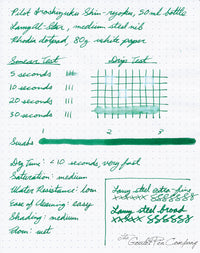 Pilot Iroshizuku Shin-ryoku, 50ml bottle
Lamy All-Star, medium steel nib
Rhodia dotpad, 80g white paper
Smear Test
Drip Test
5 seconds
10 seconds
20 seconds
30 seconds
1 2 3
Swabs
Dry Time: <10 seconds, very fast
Saturation: medium
Water Resistance: low
Ease of Cleaning: easy
Shading: medium
Flow: wet
Lamy steel extra-fine
Lamy steel broad
the Goulet Pen Company